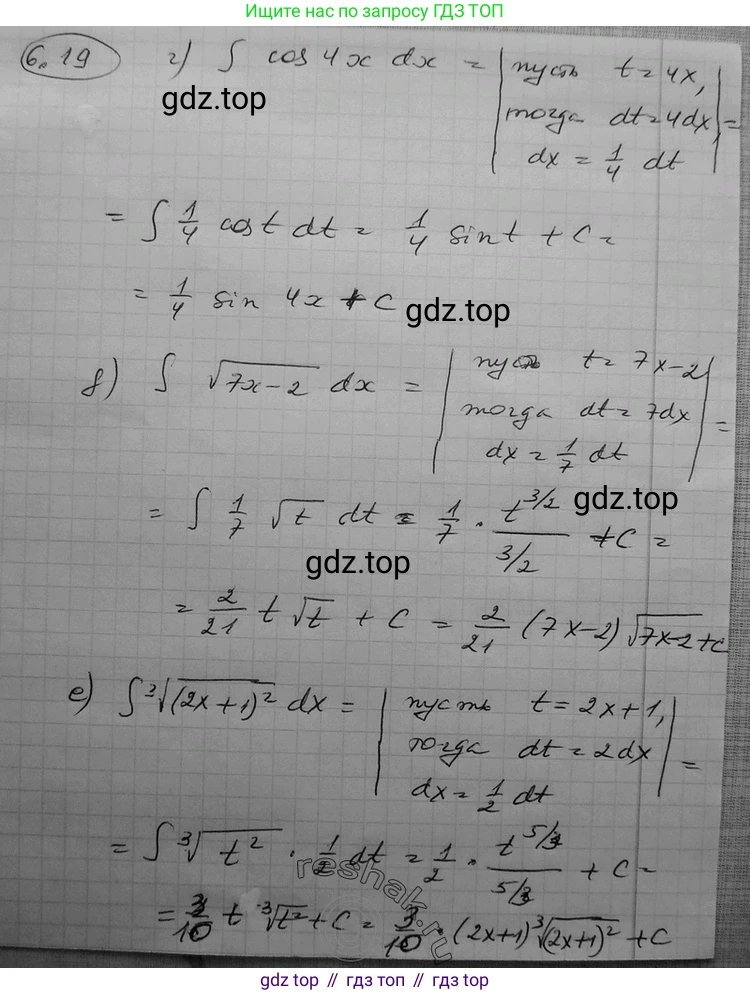 Больше решебников по запросу ГДЗ ТОП
6.19 г) ∫ cos 4x dx = | пусть t = 4x, тогда dt = 4dx, dx = 1/4 dt | =
gdz.top
= ∫ 1/4 cos t dt = 1/4 sin t + C =
= 1/4 sin 4x + C
gdz.top
д) ∫ √(7x-2) dx = | пусть t = 7x-2 тогда dt = 7dx dx = 1/7 dt | =
gdz.top
= ∫ 1/7 √t dt = 1/7 · t^(3/2) / (3/2) + C =
gdz.top
= 2/21 t √t + C = 2/21 (7x-2) √(7x-2) + C
е) ∫ ³√((2x+1)²) dx = | пусть t = 2x+1, тогда dt = 2dx dx = 1/2 dt | =
= ∫ ³√(t²) · 1/2 dt = 1/2 · t^(5/3) / (5/3) + C =
reshak.ru
= 3/10 t ³√(t²) + C = 3/10 · (2x+1) ³√((2x+1)²) + C
gdz top // гдз топ // gdz top // гдз топ